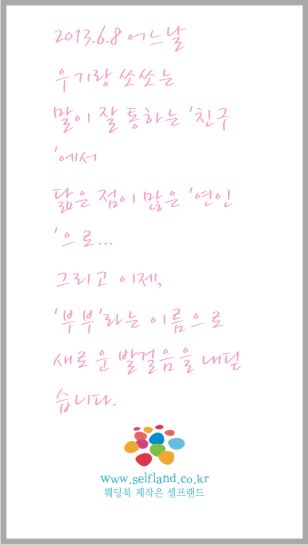 2013.6.8 어느날
우기랑 쏘쏘는
말이 잘 통하는 '친구
'에서
닮은 점이 많은 '연인
'으로...
그리고 이제,
'부부'라는 이름으로
새로운 발걸음을 내딛
습니다.
www.selfland.co.kr
웨딩북 제작은 셀프랜드